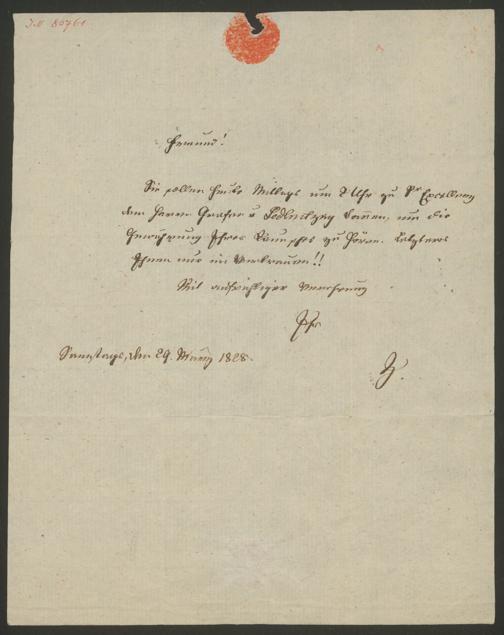 I.N 80761
Freund!
Sie sollen heute Mittags um 2 Uhr zu Sr Excellenz
dem Herrn Grafen v Sedlnitzky kommen, um die
Gewährung Ihres Wunsches zu hören. Letzteres
Ihnen nur im Vertrauen!!
Mit aufrichtiger Verehrung
Ihr
Samstags, den 29. März 1828.